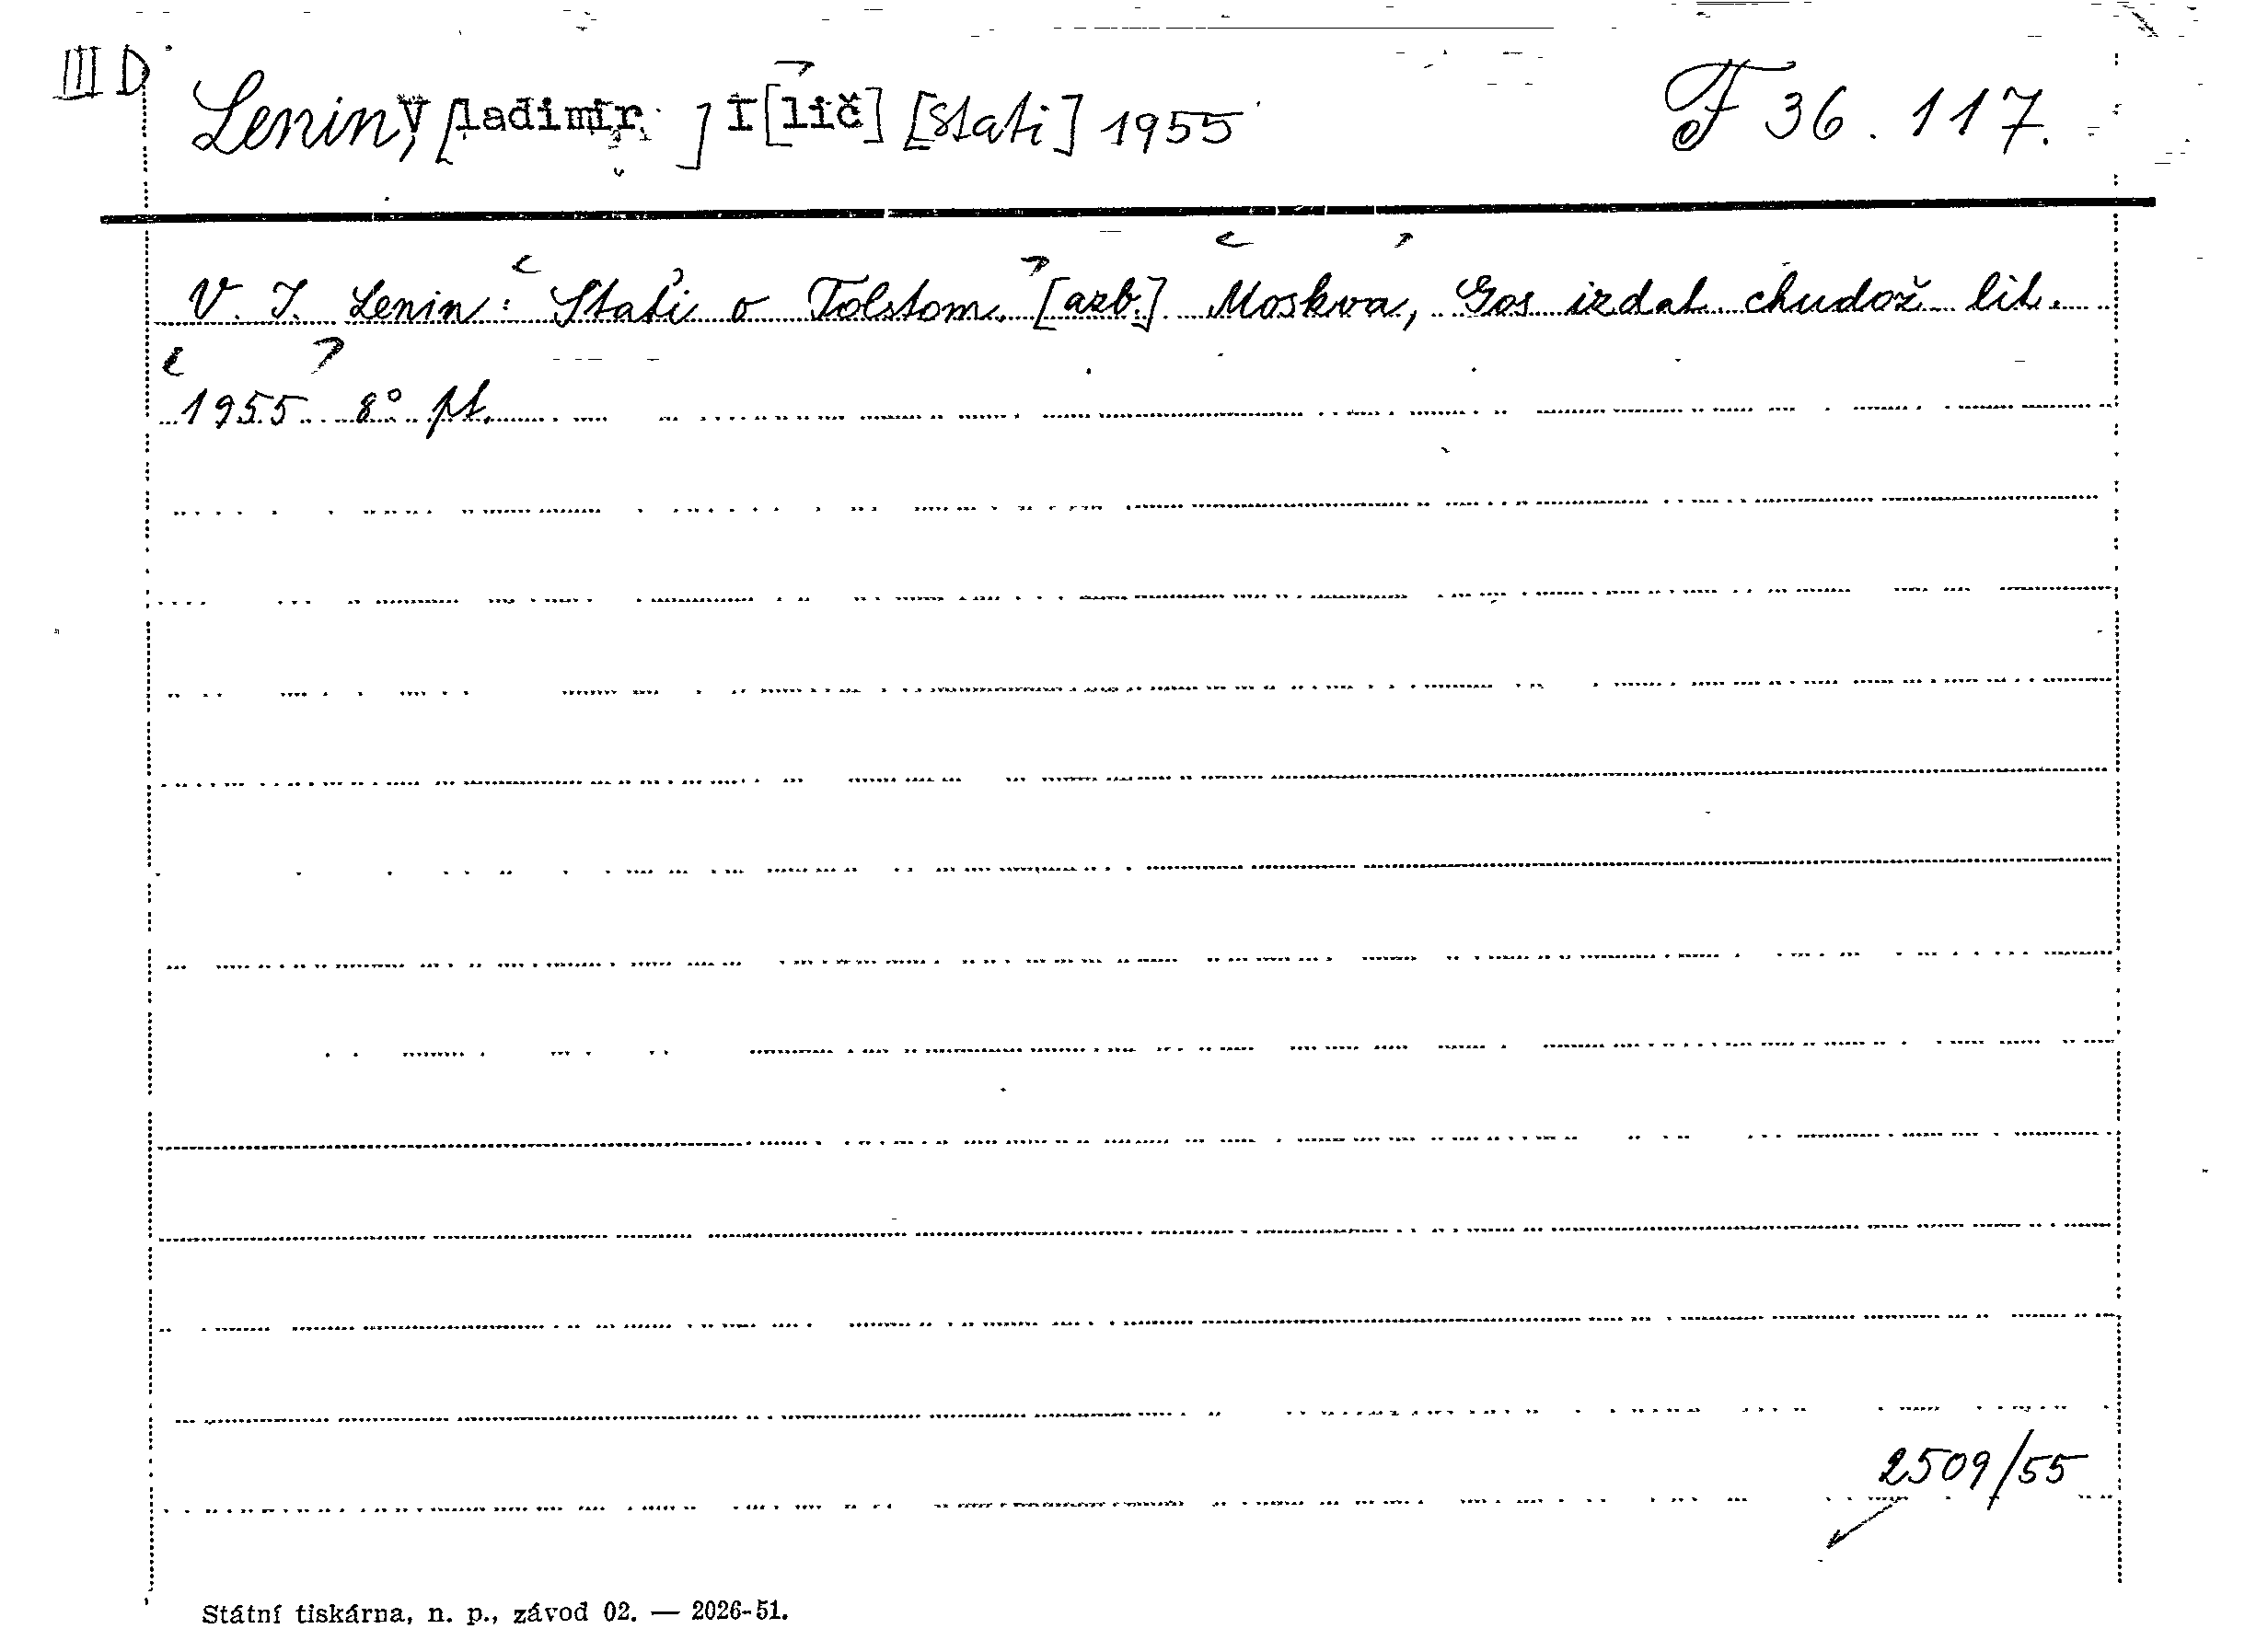 III D
Lenin, V[ladimir] I[lič] [Stati] 1955 F 36.117.
V. I. Lenin: Staťi o Tolstom. [azb.] Moskva, Gos izdat chudož lit.
1955 8° pt.
2509/55
Státní tiskárna, n. p., závod 02. — 2026-51.